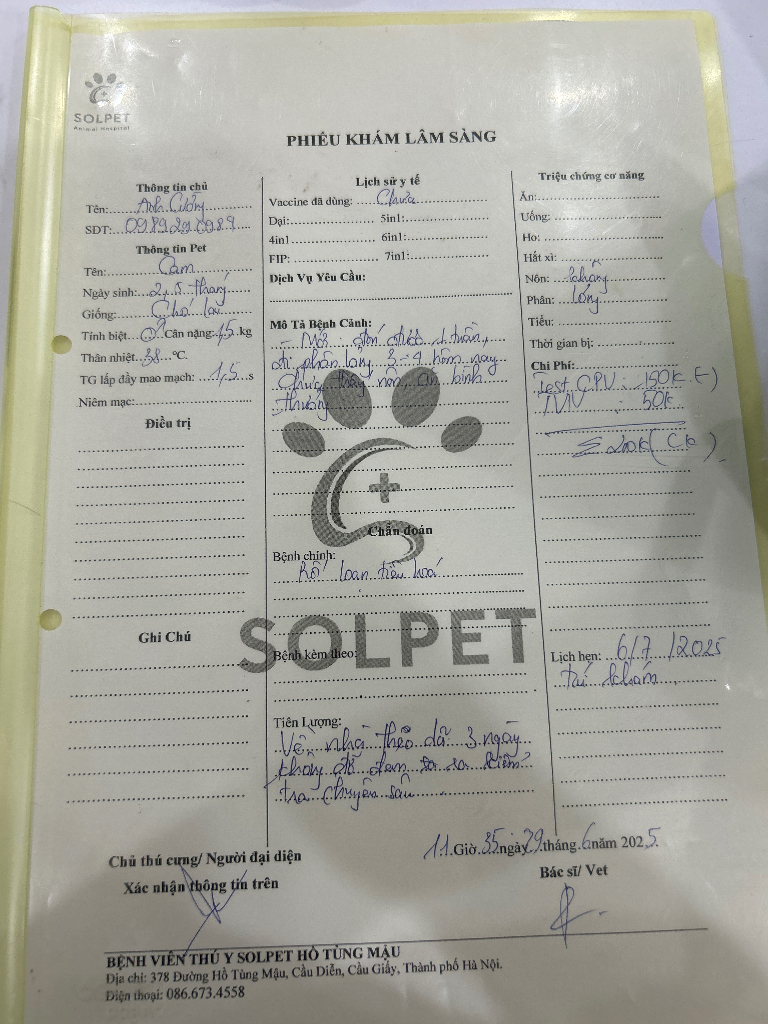 SOLPET
Animal Hospital
PHIẾU KHÁM LÂM SÀNG
Thông tin chủ
Tên: Anh Cường
SDT: 0989290989
Thông tin Pet
Tên: Cam
Ngày sinh: 2,5 tháng
Giống: Chó lai
Tính biệt Cân nặng: 1,5 kg
Thân nhiệt 38 °C
TG lấp đầy mao mạch: 1,5 s
Niêm mạc:
Điều trị
Ghi Chú
Lịch sử y tế
Vaccine đã dùng: Chưa
Dại: 5in1:
4in1 6in1:
FIP: 7in1:
Dịch Vụ Yêu Cầu:
Mô Tả Bệnh Cảnh:
- Mới đón được 1 tuần,
đi phân lỏng 3-4 hôm nay
Chưa thấy nôn, ăn bình
thường
Chẩn đoán
Bệnh chính:
Rối loạn tiêu hoá
SOLPET
Bệnh kèm theo:
Tiên Lượng:
Về nhà theo dõi 3 ngày
không đỡ đem ra kiểm
tra chuyên sâu
Triệu chứng cơ năng
Ăn:
Uống:
Ho:
Hắt xì:
Nôn: không
Phân: lỏng
Tiểu:
Thời gian bị:
Chi Phí:
test CPV: 150k (-)
50k
Σ 200k (CK)
Lịch hẹn: 6/7/2025
tái khám
11 Giờ 35 ngày 29 tháng 6 năm 2025
Chủ thú cưng/ Người đại diện
Xác nhận thông tin trên
Bác sĩ/ Vet
BỆNH VIÊN THÚ Y SOLPET HỒ TÙNG MẬU
Địa chỉ: 378 Đường Hồ Tùng Mậu, Cầu Diễn, Cầu Giấy, Thành phố Hà Nội.
Điện thoại: 086.673.4558